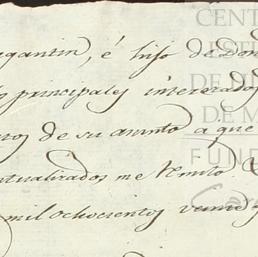 gantin, é hijo de Don
principales interezados
de su asunto a que
me remito.
mil ochocientos veinte
CENT
DE
DE M
FUND